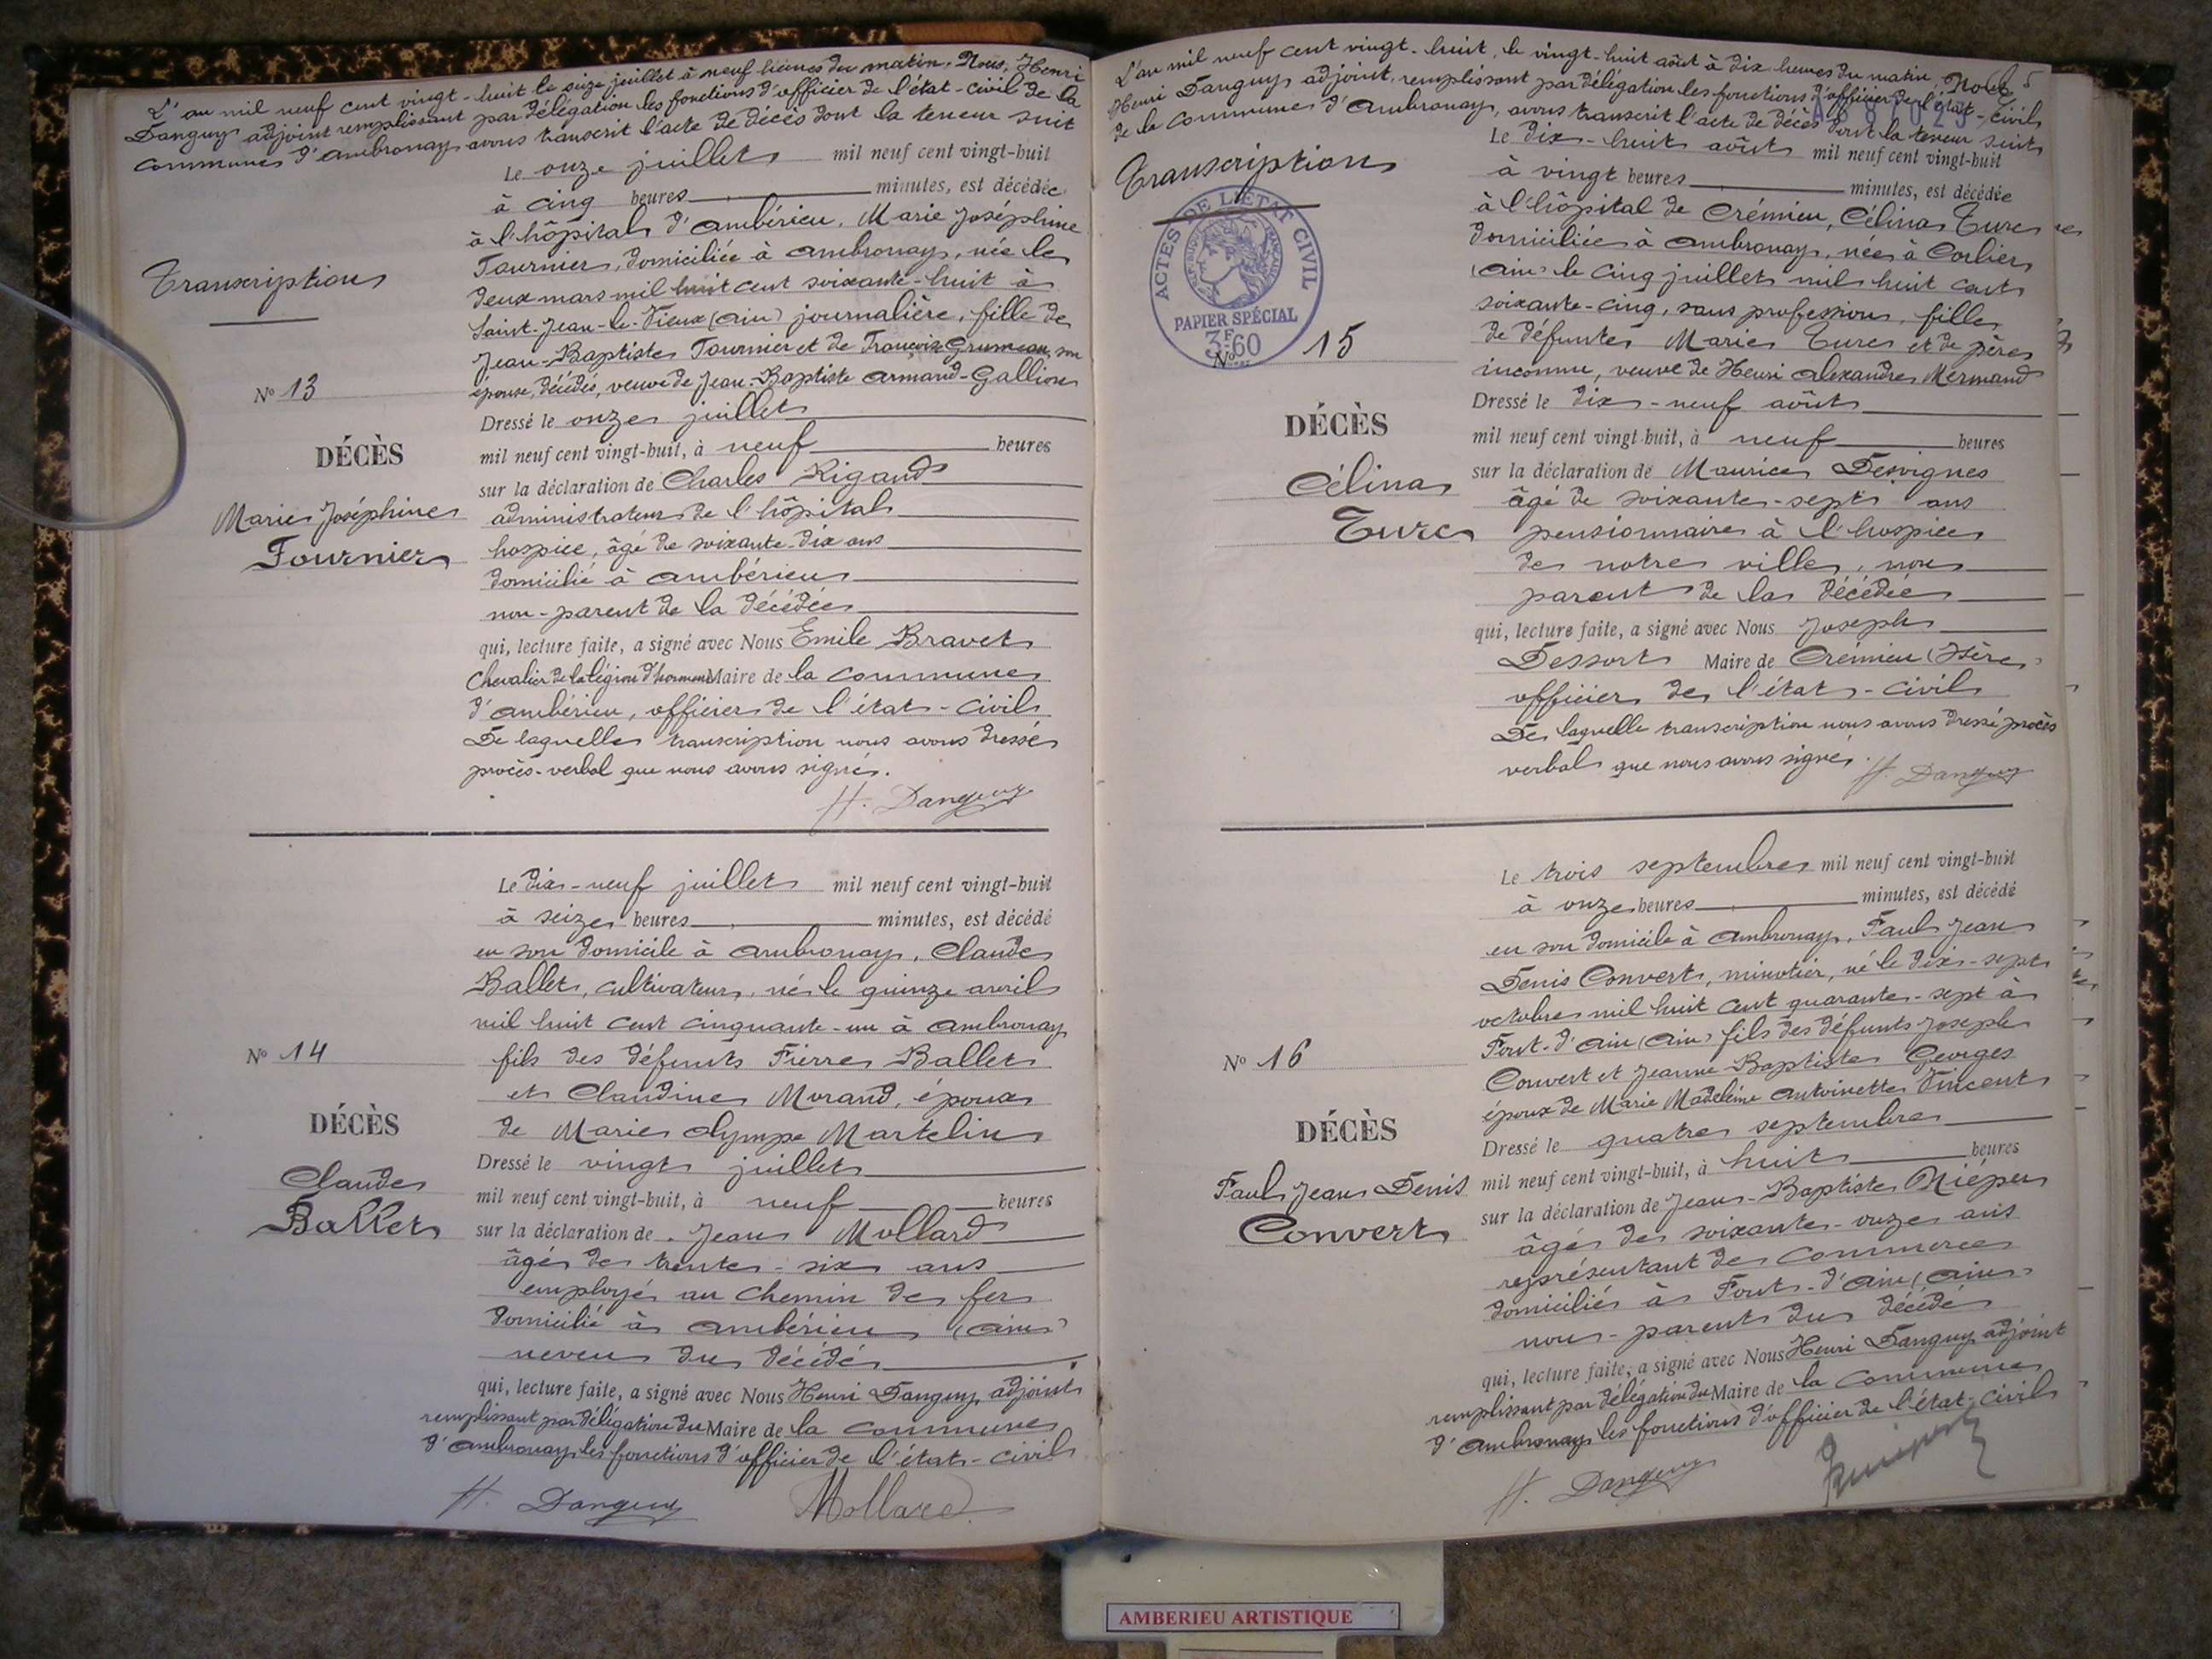 L'an mil neuf cent vingt-huit le seize juillet à neuf heures du matin. Nous, Henri
Tanguy adjoint remplissant par délégation les fonctions d'officier de l'état-civil de la
commune d'Ambronay avons transcrit l'acte de décès dont la teneur suit
Transcription
Le onze juillet mil neuf cent vingt-huit
à cinq heures minutes, est décédée
à l'hôpital d'Ambérieu, Marie Joséphine
Fournier, domiciliée à Ambronay, née le
deux mars mil huit cent soixante-huit à
Saint-Jean-le-Vieux (Ain) journalière, fille de
Jean-Baptiste Fournier et de François Grumeau, son
épouse, décédés, veuve de Jean-Baptiste Armand-Gallion
Nº 13
DÉCÈS
Marie Joséphine
Fournier
Dressé le onze juillet
mil neuf cent vingt-huit, à neuf heures
sur la déclaration de Charles Rigaud
administrateur de l'hôpital
hospice, âgé de soixante-dix ans
domicilié à Ambérieu
non-parent de la décédée
qui, lecture faite, a signé avec Nous Emile Bravet
Chevalier de la légion d'honneur Maire de la commune
d'Ambérieu, officier de l'état-civil
De laquelle transcription nous avons dressé
procès-verbal que nous avons signé.
H. Danguy
Le dix-neuf juillet mil neuf cent vingt-huit
à seize heures minutes, est décédé
en son domicile à Ambronay, Claude
Ballet, cultivateur, né le quinze avril
mil huit cent cinquante-un à Ambronay
fils des défunts Pierre Ballet
et Claudine Morand, époux
de Marie Olympe Martelin
Nº 14
DÉCÈS
Claude
Ballet
Dressé le vingt juillet
mil neuf cent vingt-huit, à neuf heures
sur la déclaration de Jean Mollard
âgé de trente-six ans
employé au chemin de fer
domicilié à Ambérieu (Ain)
neveu du décédé
qui, lecture faite, a signé avec Nous Henri Danguy, adjoint
remplissant par délégation du Maire de la commune
d'Ambronay les fonctions d'officier de l'état-civil
H. Danguy Mollard
L'an mil neuf cent vingt-huit, le vingt-huit août à dix heures du matin Nous
Henri Danguy adjoint, remplissant par délégation les fonctions d'officier de l'état-civil
de la commune d'Ambronay, avons transcrit l'acte de décès dont la teneur suit
Transcription
ACTES DE L'ÉTAT CIVIL
PAPIER SPÉCIAL
3F60
Le dix-huit août mil neuf cent vingt-huit
à vingt heures minutes, est décédée
à l'hôpital de Crémieu, Célina Turc
domiciliée à Ambronay, née à Corlier
(Ain) le cinq juillet mil huit cent
soixante-cinq, sans profession, fille
de défunte Marie Turc et de père
inconnu, veuve de Henri Alexandre Mermand
Nº 15
DÉCÈS
Célina
Turc
Dressé le dix-neuf août
mil neuf cent vingt-huit, à neuf heures
sur la déclaration de Maurice Desvignes
âgé de soixante-sept ans
pensionnaire à l'hospice
de notre ville, non
parent de la décédée
qui, lecture faite, a signé avec Nous Joseph
Dessort Maire de Crémieu (Isère)
officier de l'état-civil
De laquelle transcription nous avons dressé procès
verbal que nous avons signé.
H. Danguy
Le trois septembre mil neuf cent vingt-huit
à onze heures minutes, est décédé
en son domicile à Ambronay, Paul Jean
Denis Convert, minotier, né le dix-sept
octobre mil huit cent quarante-sept à
Pont-d'Ain (Ain) fils des défunts Joseph
Convert et Jeanne-Baptiste Georges
époux de Marie Madeleine Antoinette Vincent
Nº 16
DÉCÈS
Paul Jean Denis
Convert
Dressé le quatre septembre
mil neuf cent vingt-huit, à huit heures
sur la déclaration de Jean-Baptiste
âgé de soixante-onze ans
représentant de commerce
domicilié à Pont-d'Ain (Ain)
non-parent du décédé
qui, lecture faite, a signé avec Nous Henri Danguy adjoint
remplissant par délégation du Maire de la commune
d'Ambronay les fonctions d'officier de l'état-civil
H. Danguy
AMBERIEU ARTISTIQUE